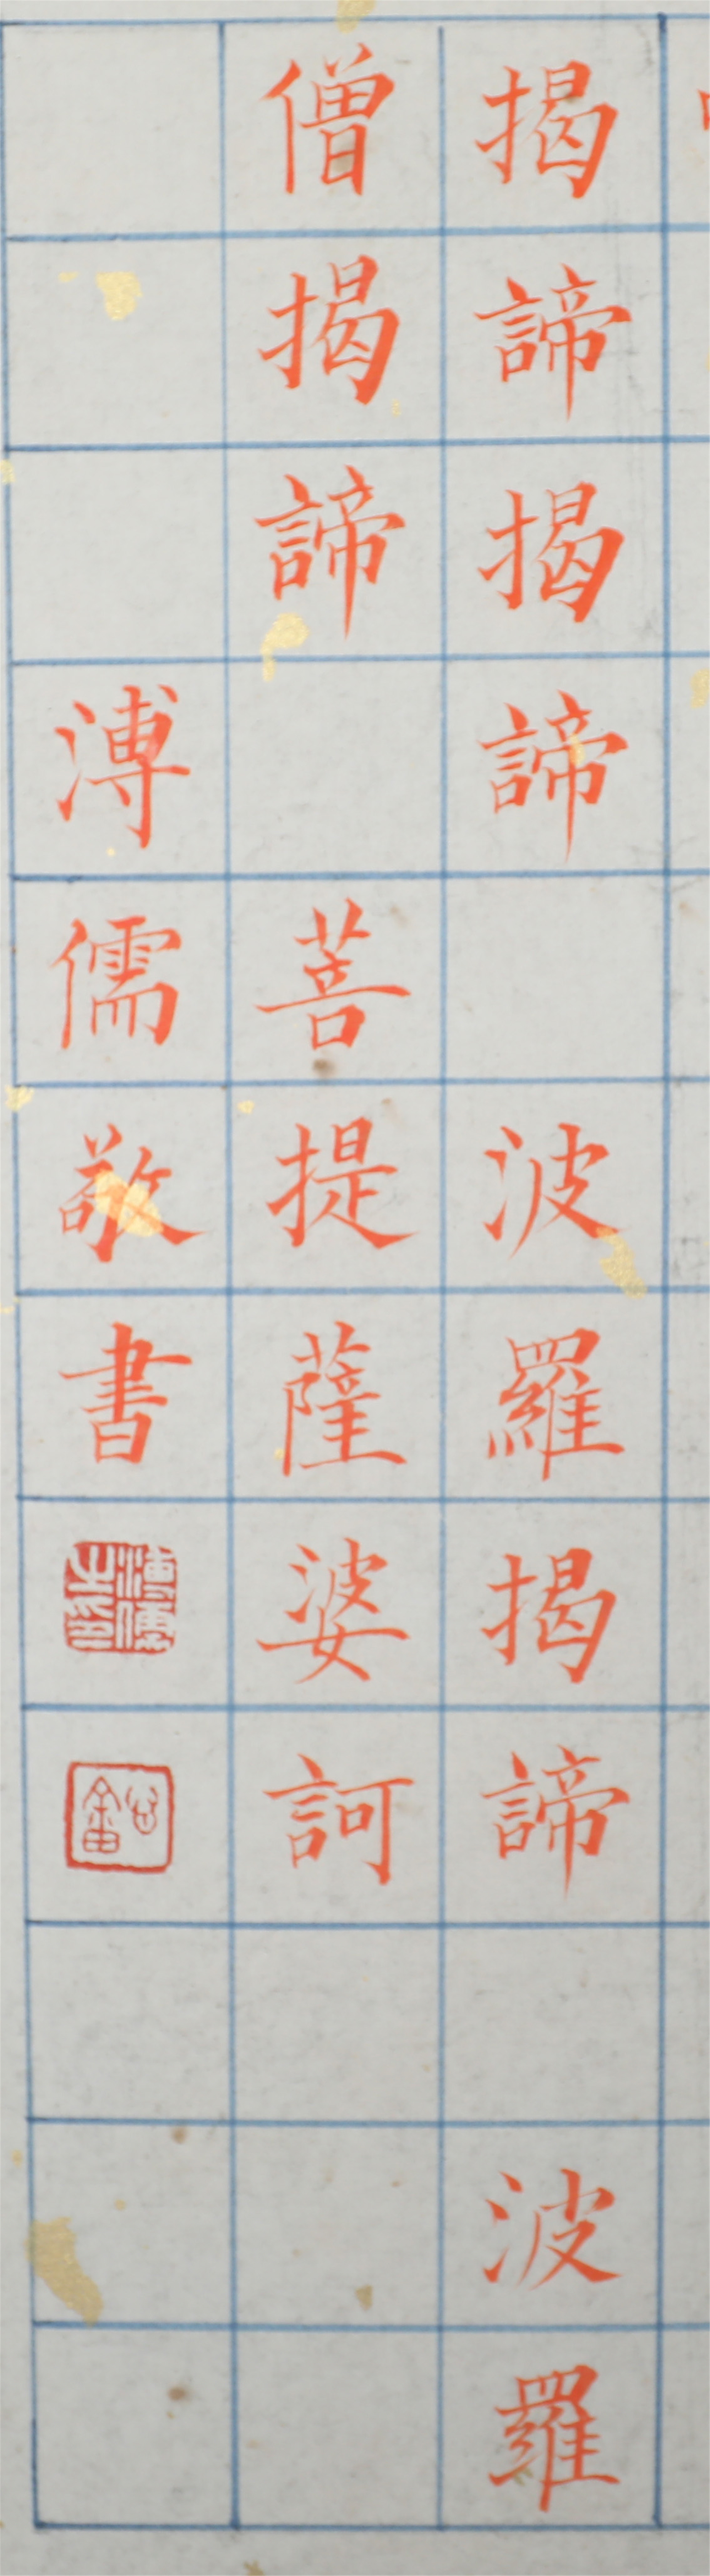 揭諦揭諦 波羅揭諦 波羅
僧揭諦 菩提薩婆訶
溥儒敬書
溥儒之印